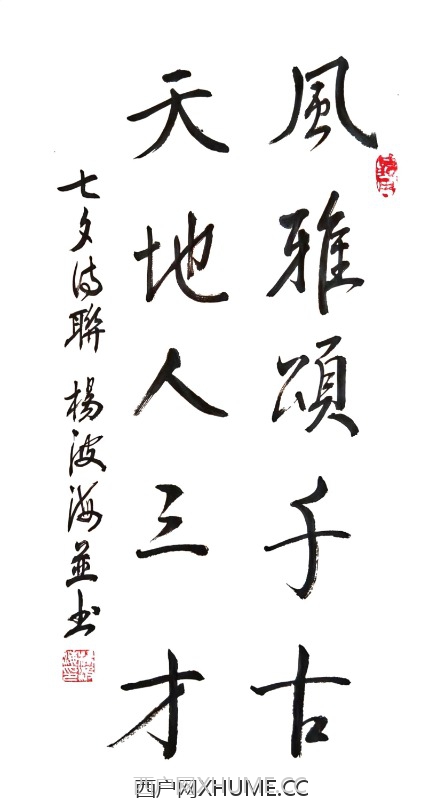 風雅頌千古
天地人三才
七夕詩聯 楊波海並书
西户网XHUME.CC